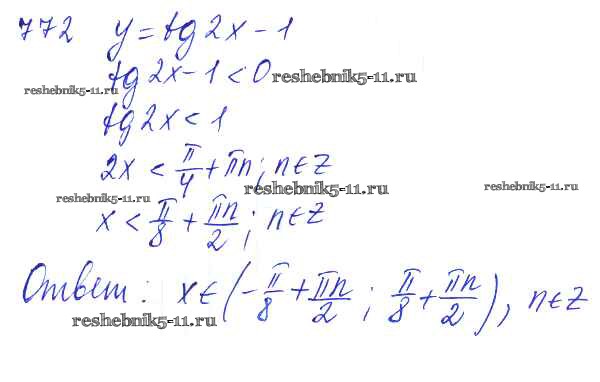 772 y = tg 2x - 1
tg 2x - 1 < 0 reshebnik5-11.ru
reshebnik5-11.ru
tg 2x < 1
2x < π/4 + πn; n ∈ Z
reshebnik5-11.ru reshebnik5-11.ru
reshebnik5-11.ru
x < π/8 + πn/2; n ∈ Z
Ответ: x ∈ (-π/8 + πn/2; π/8 + πn/2), n ∈ Z
reshebnik5-11.ru